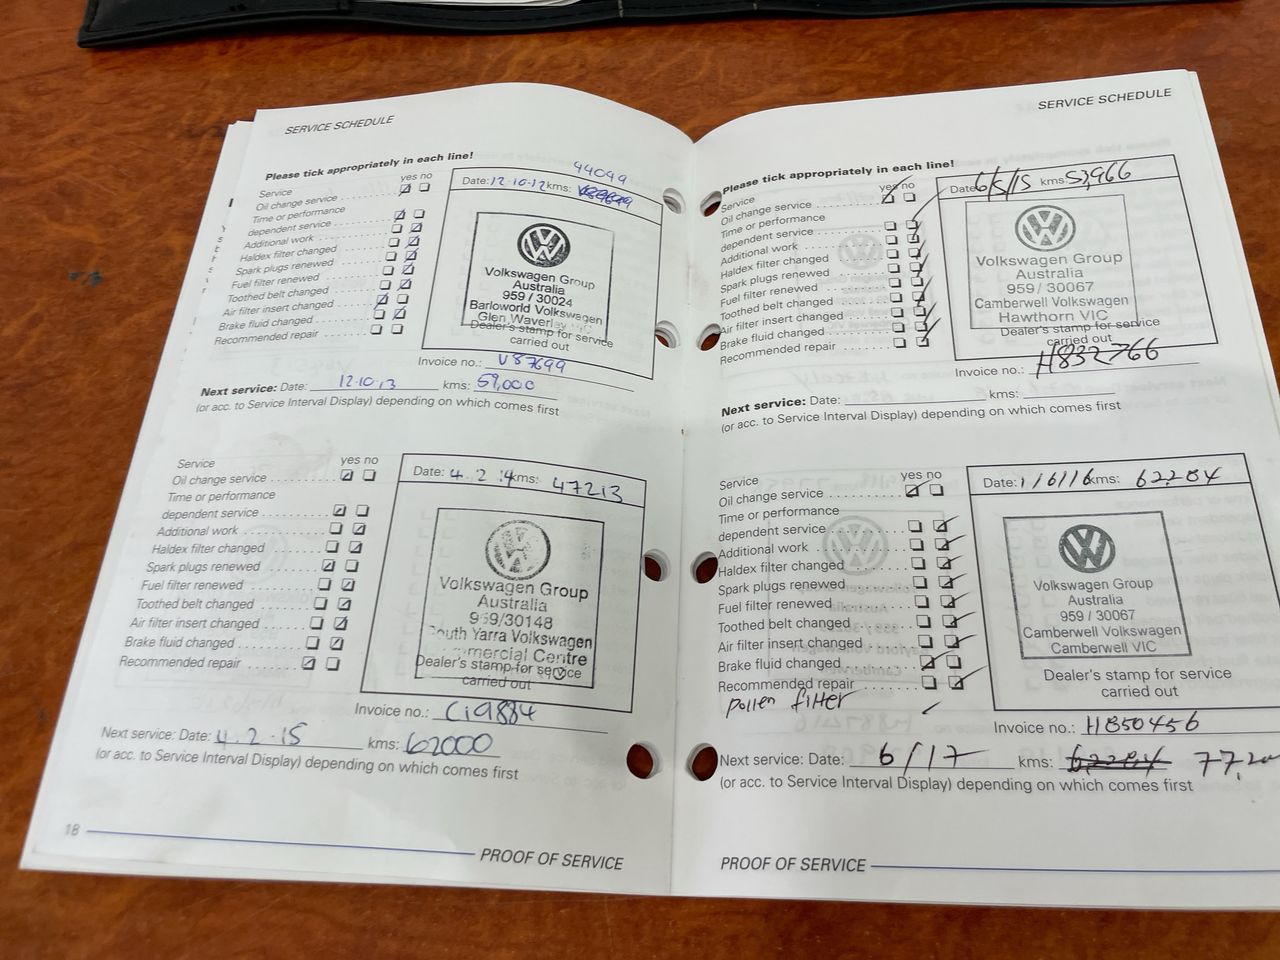 SERVICE SCHEDULE
Please tick appropriately in each line!
yes no
Service
Oil change service
Time or performance
dependent service
Additional work
Haldex filter changed
Spark plugs renewed
Fuel filter renewed
Toothed belt changed
Air filter insert changed
Brake fluid changed
Recommended repair
44099
Date: 12.10.12 kms:
Volkswagen Group
Australia
959 / 30024
Barloworld Volkswagen
Glen Waverley VIC
Dealer's stamp for service
carried out
Invoice no.: V87699
Next service: Date: 12.10.13 kms: 59,000
(or acc. to Service Interval Display) depending on which comes first
Service
yes no
Oil change service
Time or performance
dependent service
Additional work
Haldex filter changed
Spark plugs renewed
Fuel filter renewed
Toothed belt changed
Air filter insert changed
Brake fluid changed
Recommended repair
Date: 4.2.14 kms: 47213
Volkswagen Group
Australia
959/30148
South Yarra Volkswagen
Commercial Centre
Dealer's stamp for service
carried out
Invoice no.: Ci9884
Next service: Date: 4.2.15 kms: 62000
(or acc. to Service Interval Display) depending on which comes first
18
PROOF OF SERVICE
SERVICE SCHEDULE
Please tick appropriately in each line!
yes no
Service
Oil change service
Time or performance
dependent service
Additional work
Haldex filter changed
Spark plugs renewed
Fuel filter renewed
Toothed belt changed
Air filter insert changed
Brake fluid changed
Recommended repair
Date: 6/5/15 kms: 53,966
Volkswagen Group
Australia
959 / 30067
Camberwell Volkswagen
Hawthorn VIC
Dealer's stamp for service
carried out
Invoice no.: H832766
Next service: Date: kms:
(or acc. to Service Interval Display) depending on which comes first
Service
yes no
Oil change service
Time or performance
dependent service
Additional work
Haldex filter changed
Spark plugs renewed
Fuel filter renewed
Toothed belt changed
Air filter insert changed
Brake fluid changed
Recommended repair
pollen filter
Date: 1/6/16 kms: 62,284
Volkswagen Group
Australia
959 / 30067
Camberwell Volkswagen
Camberwell VIC
Dealer's stamp for service
carried out
Invoice no.: H850456
Next service: Date: 6/17 kms: 62284
(or acc. to Service Interval Display) depending on which comes first
PROOF OF SERVICE